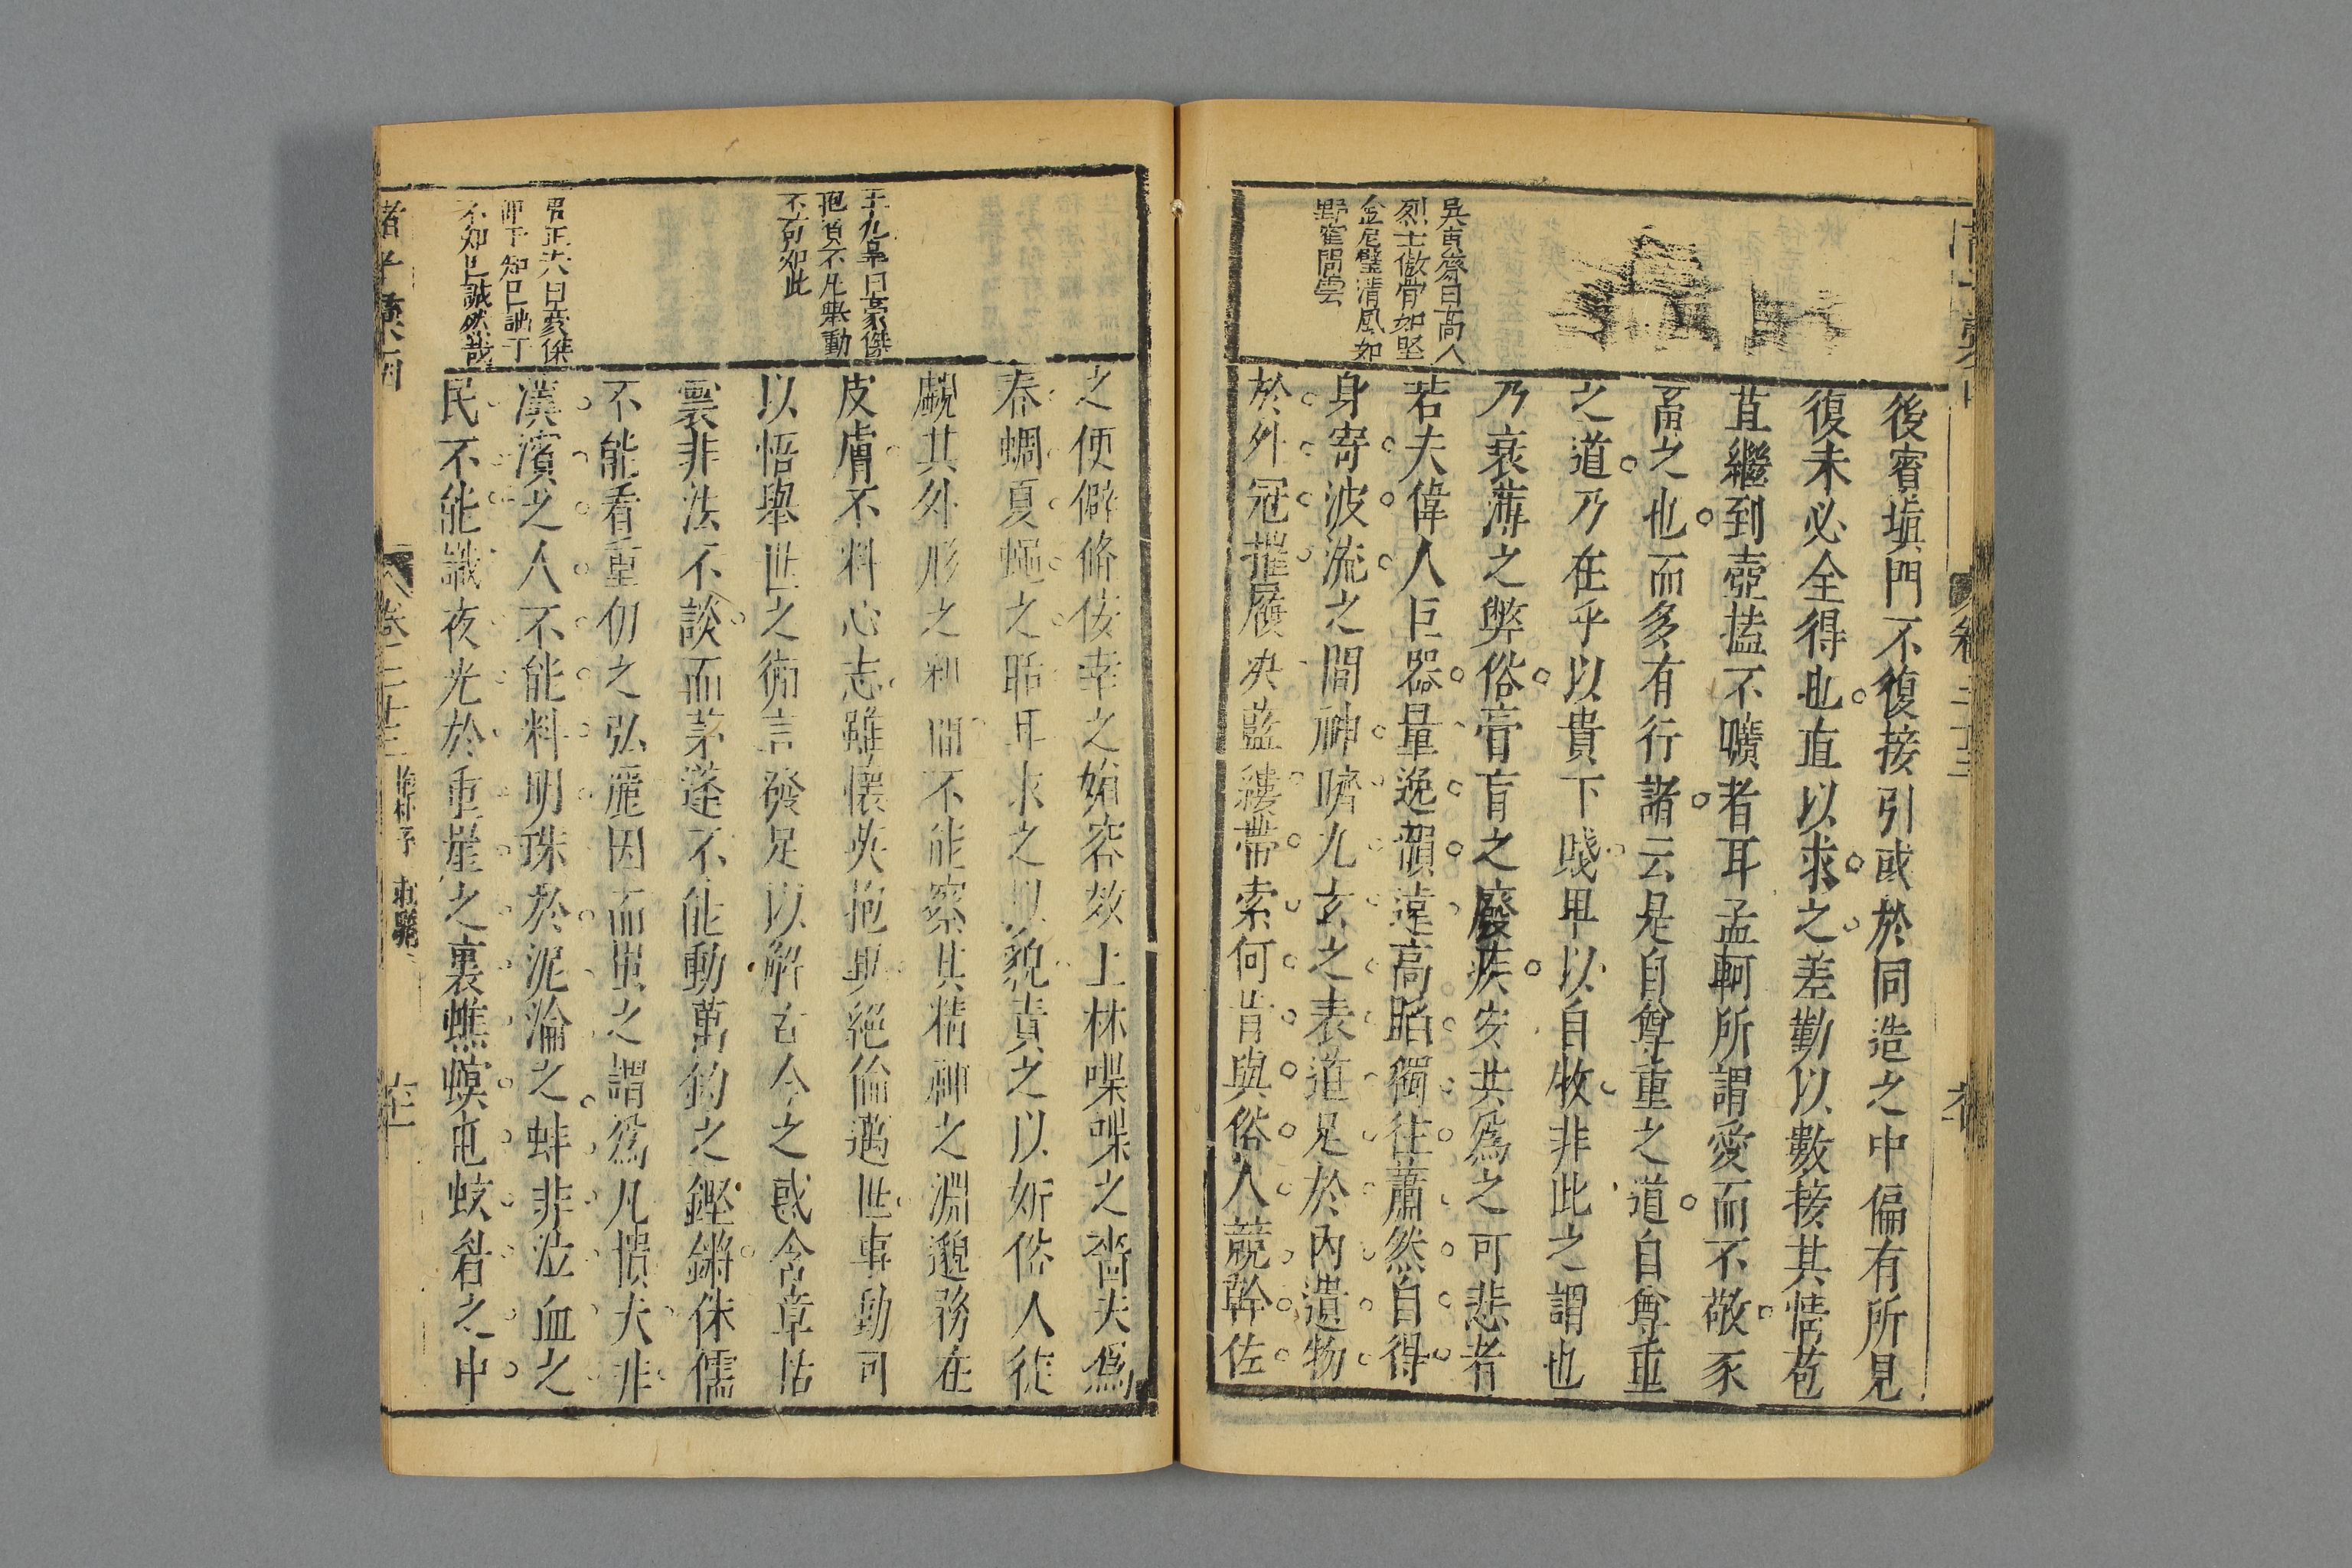 吳寅齋曰高人
烈士傲骨如堅
金尼璧清風如
野窗閒雲
後賓填門不復接引或於同造之中偏有所見
復未必全得也直以求之差勤以數接其情苞
苴繼到壺榼不曠者耳孟軻所謂愛而不敬豕
畜之也而多有行諸云是自尊重之道自尊重
之道乃在乎以貴下賤卑以自牧非此之謂也
乃衰薄之弊俗膏肓之廢疾安共為之可悲者
若夫偉人巨器量逸韻遠高蹈獨往蕭然自得
身寄波流之間神躋九玄之表道足於內遺物
於外冠摧履決藍縷帶索何肯與俗人競幹佐
王九皐曰豪傑
抱負不凡舉動
不苟如此
之便僻脩佞幸之媚容效上林喋喋之嗇夫為
春蜩夏蠅之聒耳求之以貌責之以妍俗人徒
覩其外形之粗簡不能察其精神之淵邈務在
皮膚不料心志雖懷英抱異絕倫邁世事動可
以悟舉世之術言發足以解古今之惑含章括
囊非法不談而茅蓬不能動萬鈞之鏗鏘侏儒
不能看重仞之弘麗因而蚩之謂為凡憒夫非
漢濱之人不能料明珠於泥淪之蚌非泣血之
民不能識夜光於重崖之裏蟭螟屯蚊眉之中
曰豪傑
知己訥于
不知己誠然哉
卷二十三
抱朴子